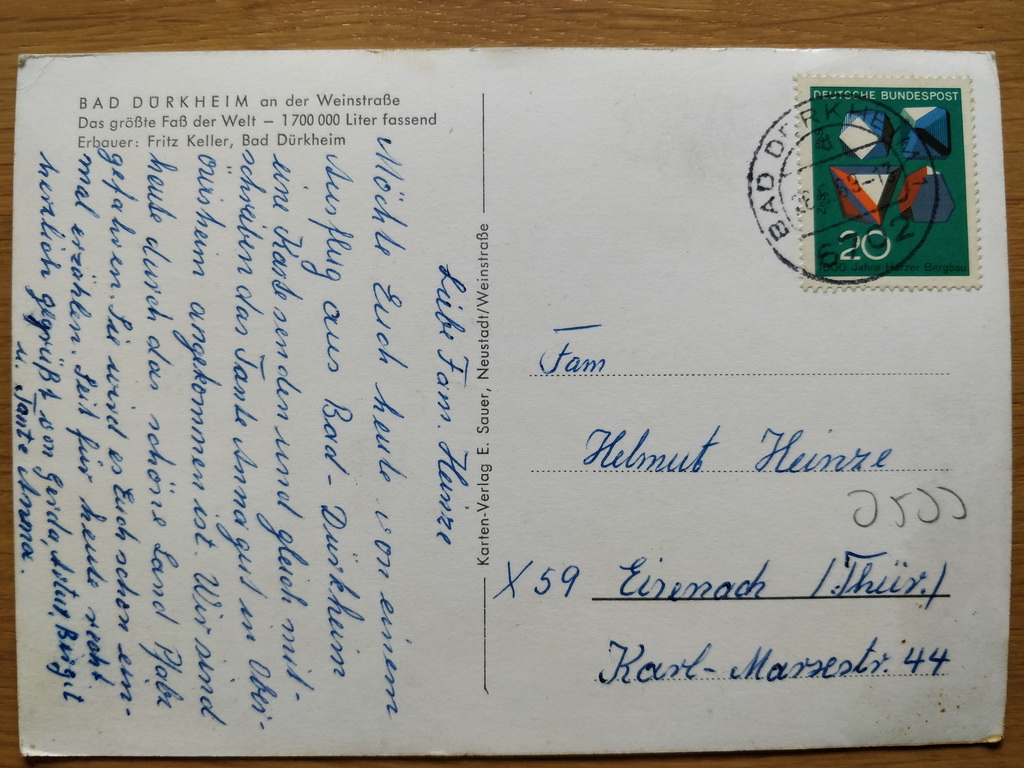 BAD DÜRKHEIM an der Weinstraße
Das größte Faß der Welt – 1700 000 Liter fassend
Erbauer: Fritz Keller, Bad Dürkheim
Liebe Fam. Heinze
Möchte Euch heute von einem
Ausflug aus Bad-Dürkheim
eine Karte senden und gleich mit-
schreiben das Tante Anna gut in Obri-
heim angekommen ist. Wir sind
heute durch das schöne Land Pfalz
gefahren. Sie wird es Euch schon ein-
mal erzählen. Seit für heute recht
herzlich gegrüßt von Gerda, Artur, Birgit
u. Tante Anna.
Karten-Verlag E. Sauer, Neustadt/Weinstraße
DEUTSCHE BUNDESPOST
20
1000 Jahre Harzer Bergbau
BAD DÜRKHEIM
6702
Fam
Helmut Heinze
X 59 Eisenach /Thür./
Karl-Marxstr. 44